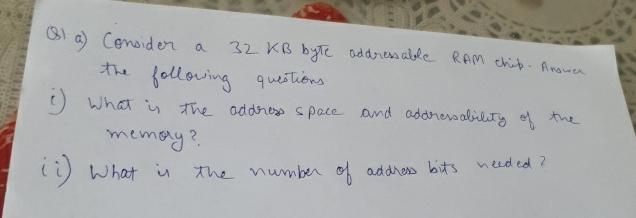 Q1 a) Consider a 32 KB byte addressable RAM chip. Answer
the following questions
i) What is the address space and addressability of the
memory?
ii) What is the number of address bits needed?